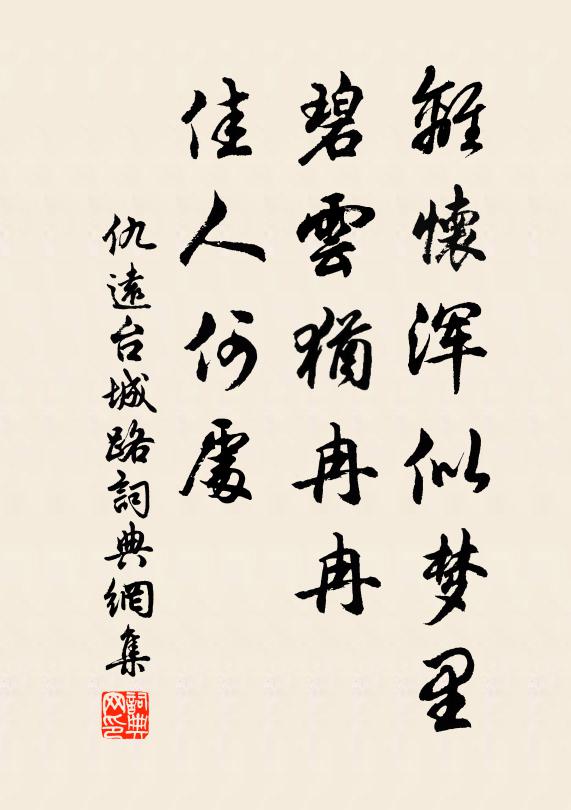 離懷浑似梦里
碧雲猶冉冉
佳人何處
仇遠台城路詞典網集
詞典网印